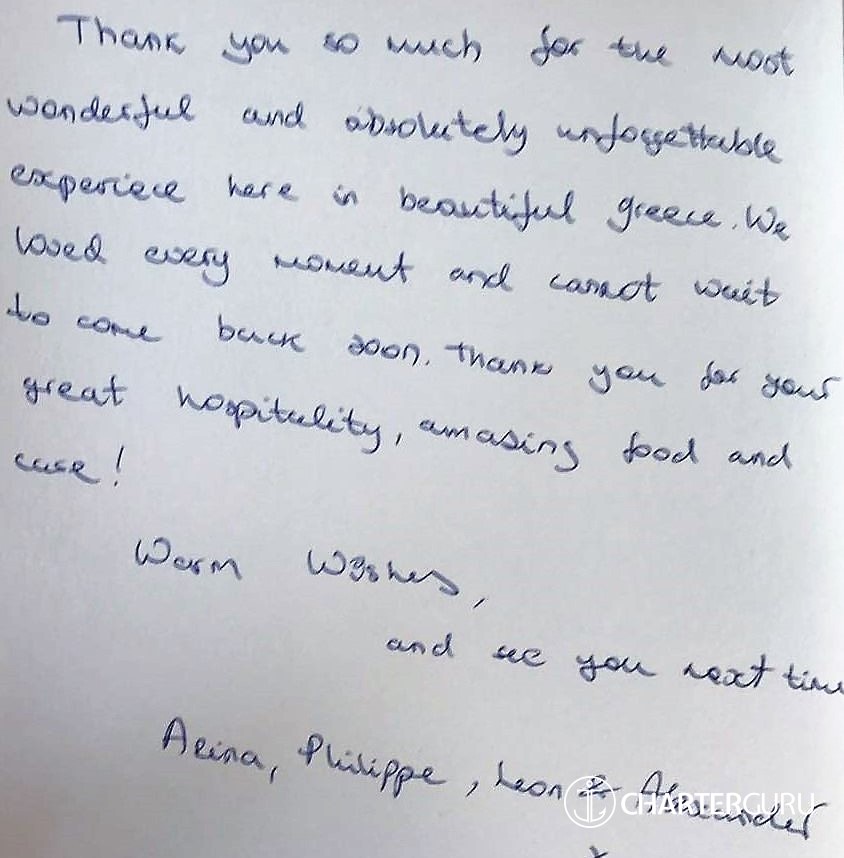 Thank you so much for the most
wonderful and absolutely unforgettable
experiece here in beautiful greece. We
loved every moment and cannot wait
to come back soon. Thank you for your
great hospitality, amasing food and
care!
Warm Wishes,
and see you next time
Arina, Philippe, Leon & Alexander
CHARTERGURU